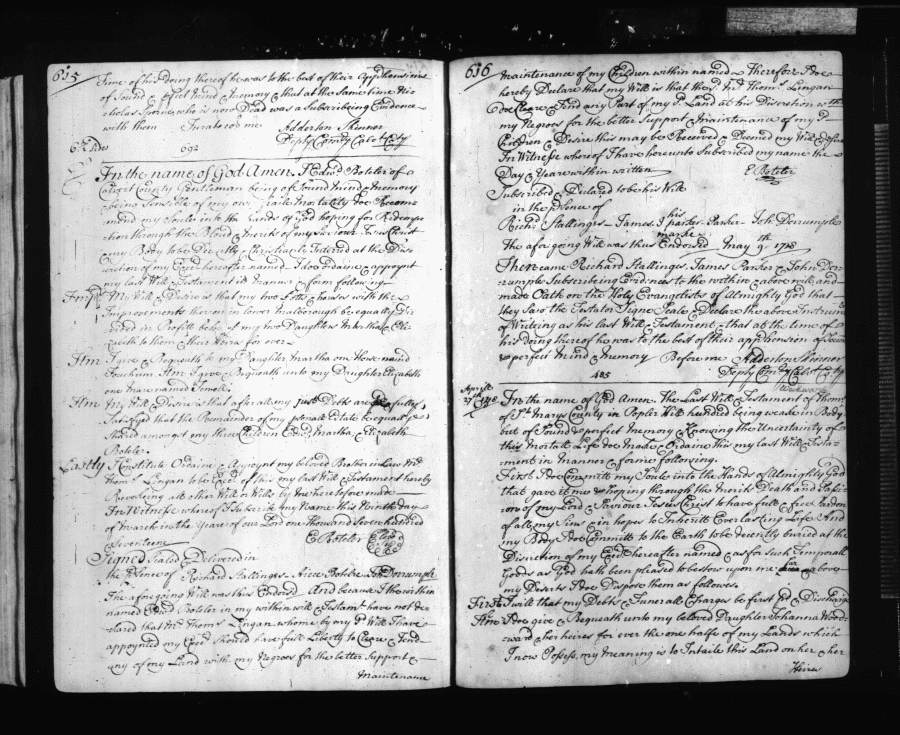 635
Time of his doing thereof he was to the best of their Apprhensions
of Sound & pfect mind & memory & that at the same time Nic
holas Sporne who is now Dead was a Subscribeing Evidence
with them Jurat cor me Adderton Skinner
Deply Comry Calvt Coty
6th Sides 092
In the name of God Amen. I Edwd Boteler of
Calvert County Gentleman being of Sound Mind & memory
& being Sensible of my own fraile mortality doe Recom
mend my Soule into the hands of God hoping for Redemp
tion through the Blood & merits of my Saviour Jesus Christ
my Body to be Decently & Christianly Interred at the Dis
cretion of my Exec hereafter named I doe ordaine & appoynt
my last Will & Testament in manner & form following
Imps My Will & Desire is that my two Lotts & houses with the
Improvements thereon in lower Marlborough be equally Di
vided in Profitt betwixt my two Daughters Martha & Eliz
abeth to them & their Heirs for ever
Itm I give & Bequeath to my Daughter Martha one Horse named
I give & Bequeath unto my Daughter Elizabeth
one mare named
Itm My Will & Desire is that after all my just Debts are fully
Satisfyed that the Remainder of my psonall Estate be equally
shared amongst my three Children Edwd, Martha & Elizabeth
Boteler.
Lastly I Constitute Ordaine & Appoynt my beloved Brother in Law Mr
Thoms Lingan to be Exec of this my last Will & Testament hereby
Revokeing all other Will or Wills by me heretofore made
In Witness whereof I Subscribe my Name this Ninth day
of March in the Year of our Lord one thousand Seven hundred
& Seventeen E Boteler Seald
Signed Sealed & Delivered in
the psence of Richard Stallings. Boteler. Jon Dorrumple
The afore going Will was thus Endorsd And because I the within
named Edwd Boteler in my within will & Testamt have not de
clared that Mr Thoms Lingan whome by my sd Will I have
appoynted my Exec Should have full Liberty to Cleare & Tend
any of my Land with my Negroes for the better Support &
Maintenance
636
Maintenance of my Children within named Therefore I doe
hereby Declare that my Will is that the sd Mr Thoms Lingan
doe Cleare & Tend any Part of my sd Land at his Discretion with
my Negroes for the better Support & maintenance of my sd
Children & Desire this may be Received & Deemed my Will &
In Witness whereof I have hereunto Subscribed my name the
Day & Year within written
E Boteler
Subscribed & Declared to be his Will
in the psence of
Richd Stallings - James his Parker - Joh Dorrumple
marke
The afore going Will was thus Endorsed May 9th 1718
Then came Richard Stallings, James Parker & John Dor
rumple Subscribing Evidences to the within & above will and
made Oath on the Holy Evangelists of Almighty God that
they Saw the Testator Signe Seale & Declare the above Instrumt
of Writeing as his last Will & Testament & that at the time of
his doing thereof he was to the best of their apphension of Sound
& perfect Mind & Memory Before me Adderton Skinner
Deply Comry Calvt Coty
485
Aprill
27th 1718
In the name of God Amen. The Last Will & Testament of Thoms
of St Marys County in Popler Hill hundred being weake in Body
but of Sound & perfect memory & Knowing the Uncertainty of
this Mortall Life doe Make & Ordaine this my last Will & Testa
ment in Manner & forme following.
First I doe Committ my Soule into the Hands of Almighty God
that gave it me & hoping through the Meritts Death and Passi
on of my Lord & Saviour Jesus Christ to have full & free Pardon
of all my Sins & in hopes to Inheritt Everlasting Life And
my Body I doe Committ to the Earth to be decently buried at the
Discretion of my Exec hereafter named & as for such Temporall
Goods as God hath been pleased to bestow upon me far above
my Deserts I doe Dispose them as followes.
First I will that my Debts & Funerall Charges be first pd & Discharged
Itm I doe give & Bequeath unto my beloved Daughter Johanna Wood
ward & her heires for ever the one halfe of my Lands which
I now Posess, my meaning is to Intaile this Land on her & her
Heires